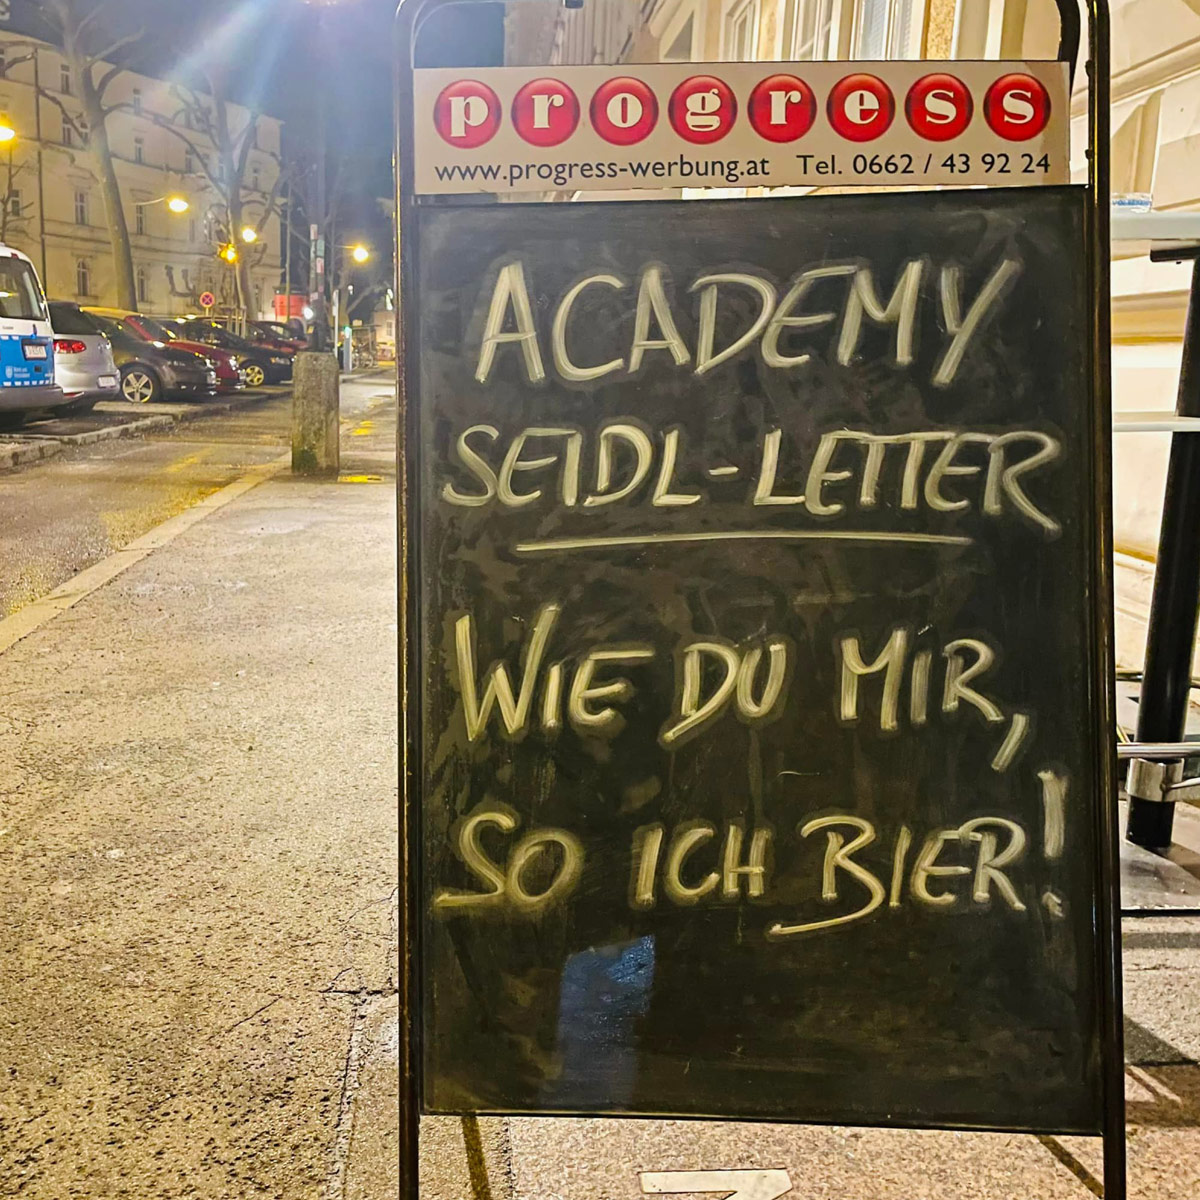 progress
www.progress-werbung.at Tel. 0662 / 43 92 24
ACADEMY
SEIDL-LETTER
WIE DU MIR,
SO ICH BIER!